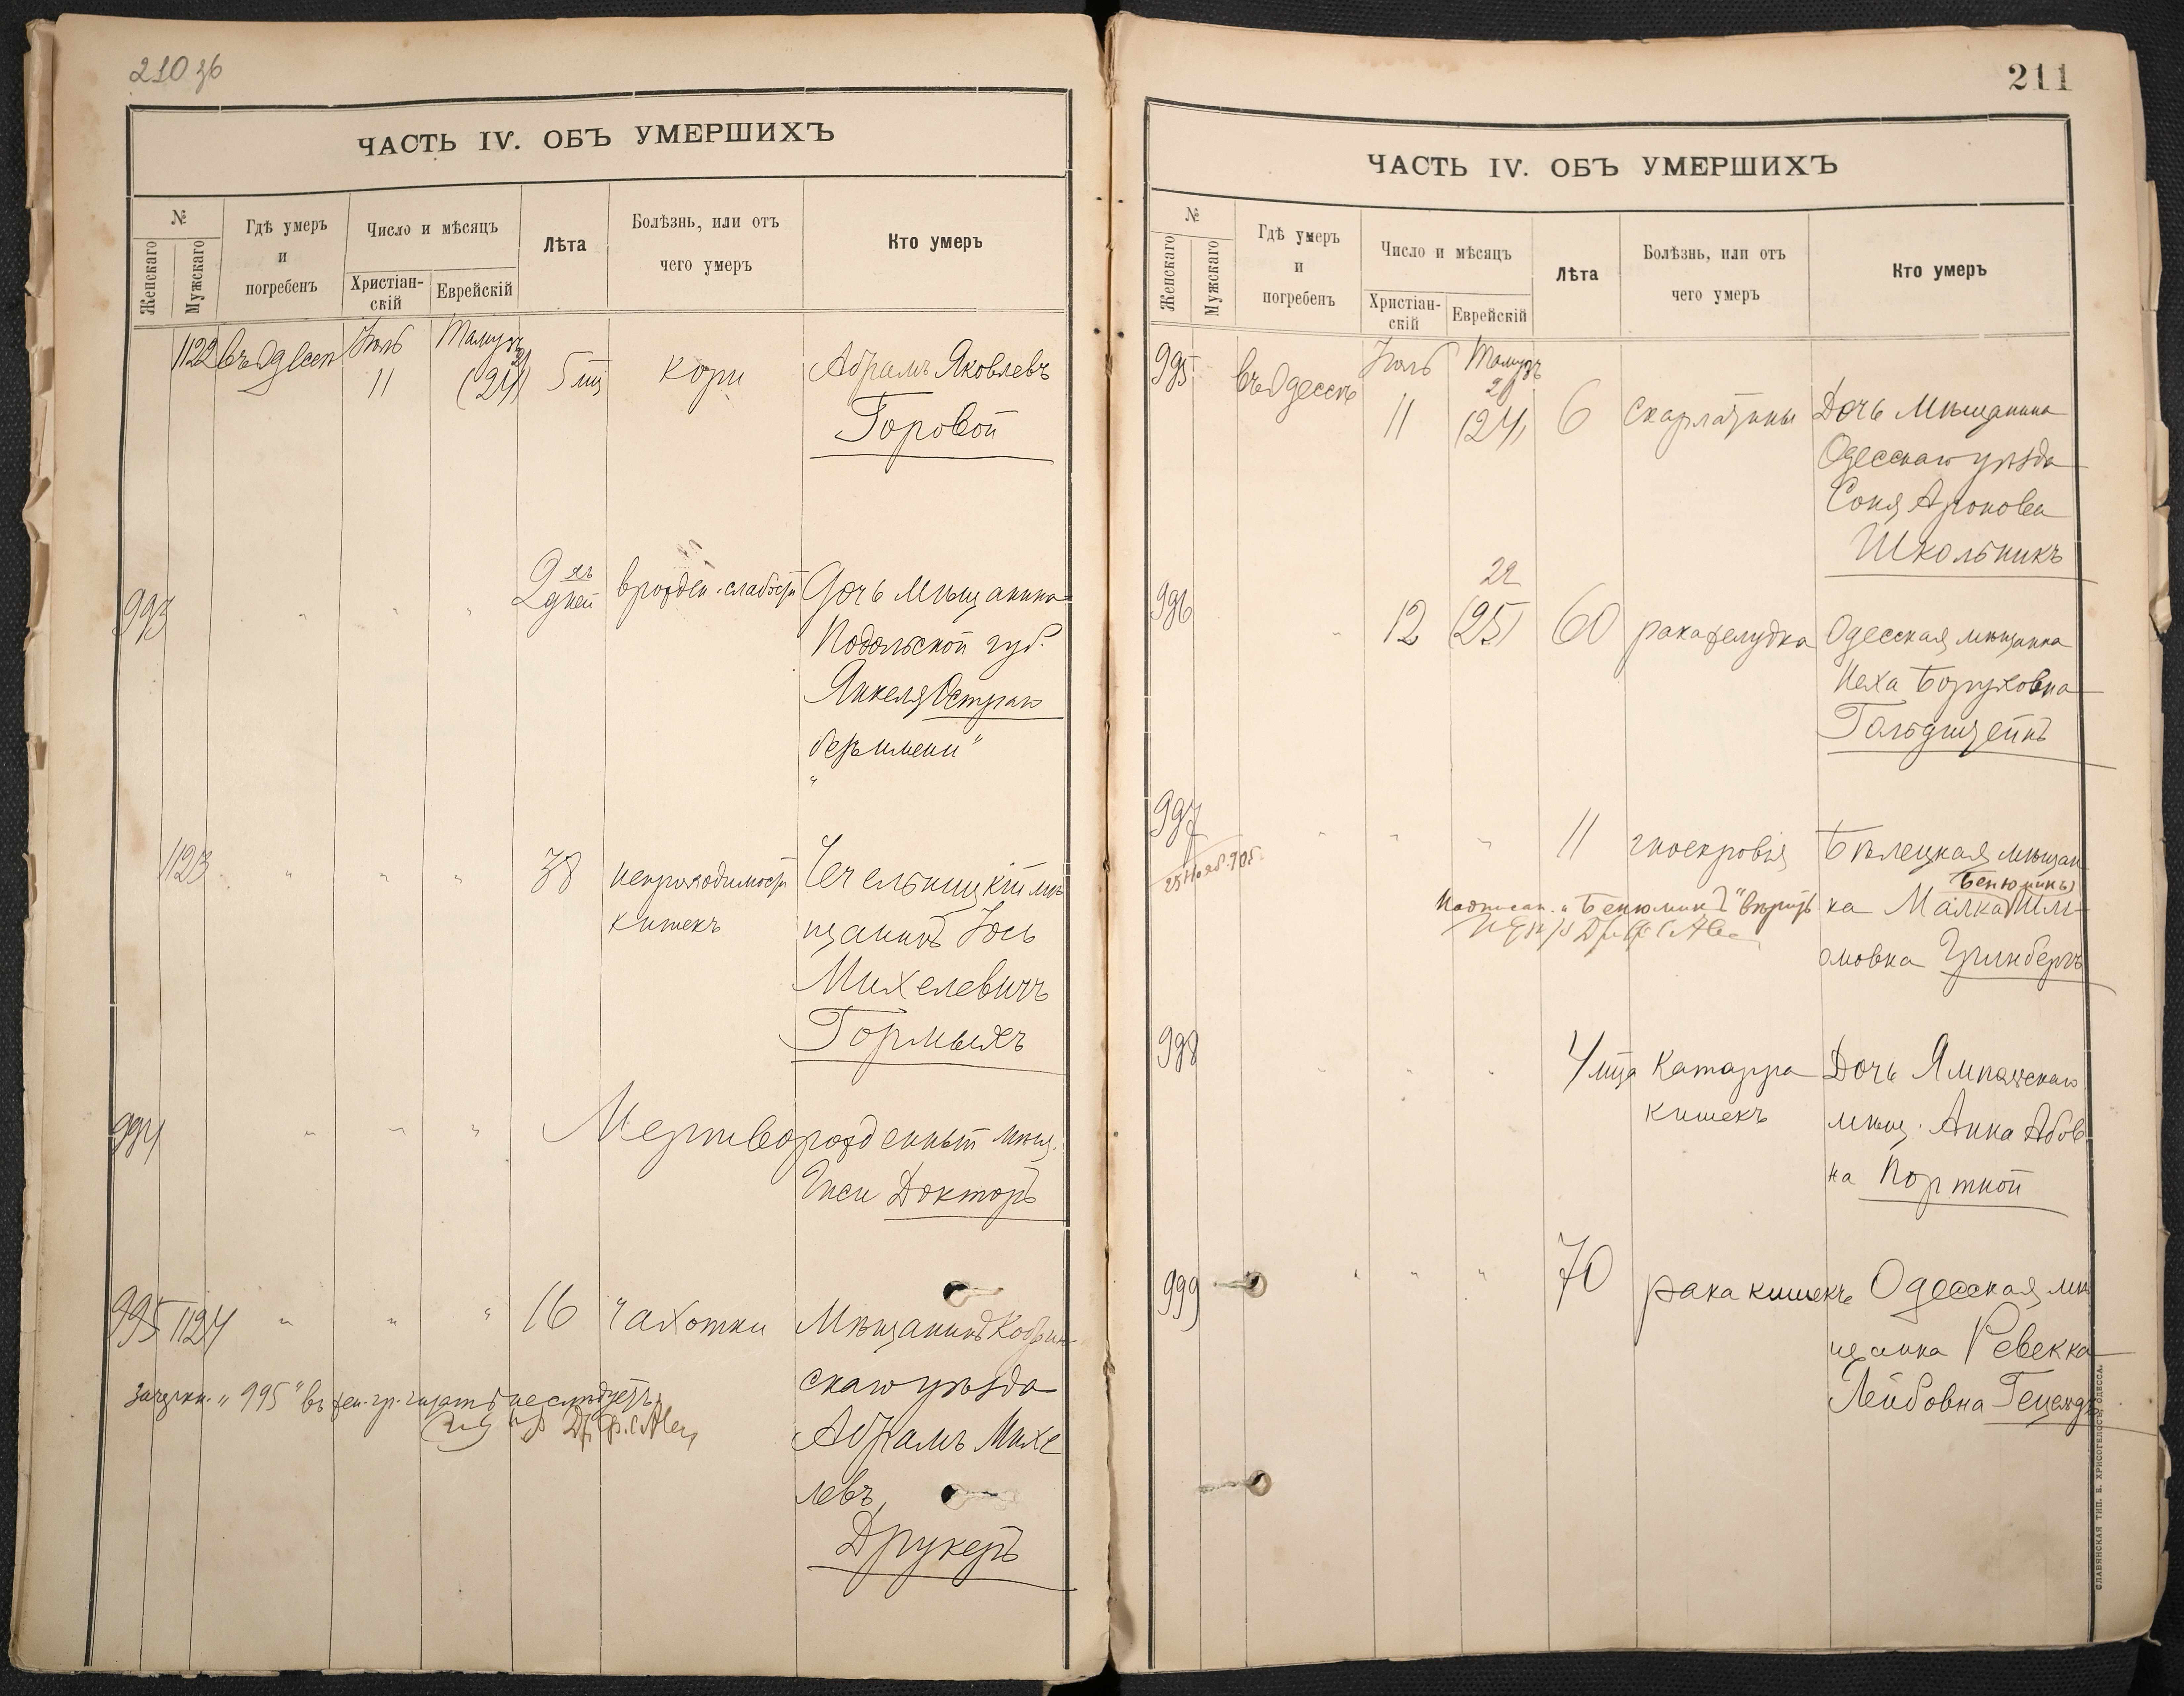 210 об
ЧАСТЬ IV. ОБЪ УМЕРШИХЪ
№
Женскаго
Мужскаго
Гдѣ умеръ
и
погребенъ
Число и мѣсяцъ
Христіан-
скій
Еврейскій
Лѣта
Болѣзнь, или отъ
чего умеръ
Кто умеръ
1122 въ Одессѣ Іюль 11 Тамузъ 21 (24) 5 мц кори Абрамъ Яковлевъ
Горовой
993 " " " 2хъ дней врожден. слабости Дочь Мѣщанина
Подольской губ.
Янкеля Остраго
безъ имени"
"
1123 " " " 38 непроходимости Чечельницкій мѣ
кишекъ щанинъ Іось
Михелевичъ
Гормыхъ
994 " " " Мертворожденный мѣщ.
Докторъ
995 1124 " " " 16 чахотки Мѣщанинъ Кобрин
скаго уѣзда
Абрамъ Михе
левъ
Друкеръ
зачеркн. "995" въ жен. гр. читать не слѣдуетъ.
211
ЧАСТЬ IV. ОБЪ УМЕРШИХЪ
№
Женскаго
Мужскаго
Гдѣ умеръ
и
погребенъ
Число и мѣсяцъ
Христіан-
скій
Еврейскій
Лѣта
Болѣзнь, или отъ
чего умеръ
Кто умеръ
995 въ Одессѣ Іюль 11 Тамузъ 21 (24) 6 скарлатины Дочь Мѣщанина
Одесскаго уѣзда
Соня Аронова
Школьникъ
996 " 12 22 (25) 60 рака желудка Одесская мѣщанка
Неха Боруховна
Гольдштейнъ
997 " " " 11 гноекровія Бѣлецкая мѣщан
25 Нояб. 905.
Бенюминъ
Надписан. "Бенюминъ" вѣрить ка Малка Шли
омовна Гринбергъ
998 " " " 4 мца Катарра Дочь Ямпольскаго
кишекъ мѣщ. Анна Абов
на Портной
999 " " " 70 рака кишекъ Одесская мѣ
щанка Ревекка
Лейбовна
СЛАВЯНСКАЯ ТИП. Е. ХРИСОГЕЛОСЪ, ОДЕССА.